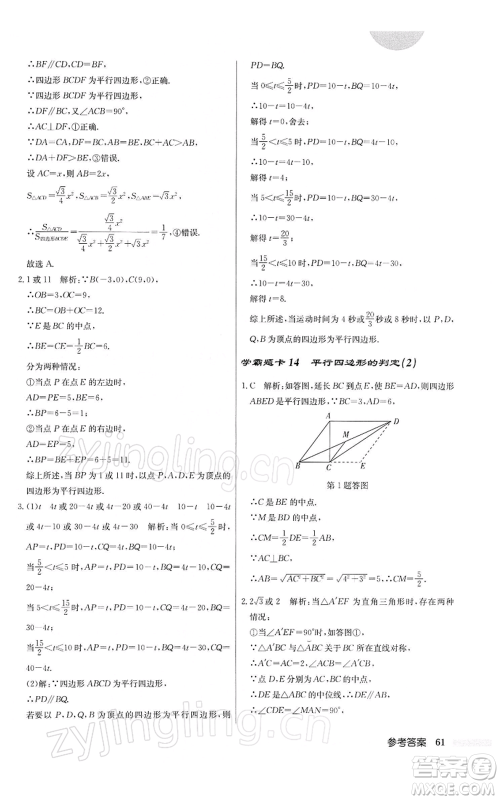 ∴BF∥CD,CD=BF.
∴四边形 BCDF 为平行四边形,②正确.
∵DF∥BC,又∠ACB=90°,
∴AC⊥DF,①正确.
∵DA=CA,DF=BC,AB=BE,BC+AC>AB,
∴DA+DF>BE,③错误.
设 AC=x,则 AB=2x.
S△ACD=√3/4 x²,S△ACB=√3/2 x²,S△ABE=√3 x²,
∴S△ACD/S四边形BCDE=(√3/4 x²)/(√3/4 x²+√3/2 x²+√3 x²)=1/7,④错误.
故选 A.
2.1 或 11 解析:∵B(-3,0),C(9,0),
∴OB=3,OC=9.
∴BC=OB+OC=12.
∵E 是 BC 的中点,
∴BE=CE=1/2 BC=6.
分为两种情况:
①当点 P 在点 E 的左边时,
AD=PE=5,
∴BP=BE-PE=6-5=1.
②当点 P 在点 E 的右边时,
AD=EP=5,
∴BP=BE+EP=6+5=11.
综上所述,当 BP 为 1 或 11 时,以 A,D,E,P 为顶点的
四边形为平行四边形.
3.(1)4t 或 10-4t 或 4t-10 10-t 10-4t 或
4t-10 或 30-4t 或 4t-30 解析:当 0≤t≤5/2
时,AP=4t,BP=10-4t,PD=10-t,BQ=10-4t;
当 5/2<t≤5 时,AP=10-4t,PD=10-t,BQ=4t-10;
当 5<t≤15/2 时,AP=4t-10,PD=10-t,BQ=30-4t;
当 15/2<t≤10 时,AP=4t-10,PD=10-t,BQ=
40-4t.
(2)解:∵四边形 ABCD 为平行四边形,
∴PD∥BC.
若要以 P,D,Q,B 为顶点的四边形为平行四边形,则
PD=BQ.
当 0≤t≤5/2 时,PD=10-t,BQ=10-4t,
∴10-t=10-4t,
解得 t=0;
当 5/2<t≤5 时,PD=10-t,BQ=4t-10,
∴10-t=4t-10,
解得 t=4;
当 5<t≤15/2 时,PD=10-t,BQ=30-4t,
∴10-t=30-4t,
解得 t=20/3;
当 15/2<t≤10 时,PD=10-t,BQ=4t-30,
∴10-t=4t-30,
解得 t=8.
综上所述,当运动时间为 0 秒、4 秒、20/3 秒或 8 秒时,以 P,D,
Q,B 为顶点的四边形是平行四边形.
学霸题卡 14 平行四边形的判定(2)
1.C 解析:如答图,延长 BC 到 E 使 BE=AD,则四边形
ABED 是平行四边形.
A
D
M
B
C
E
第 1 题答图
∵BC=3,AD=6,
∴C 是 BE 的中点.
∵M 是 BD 的中点,
∴CM=1/2 DE=1/2 AB.
∵AC⊥BC,
∴AB=√AC²+BC²=√4²+3²=5,
∴CM=5/2.
2.2√3 或 2 解析:当△A′EF 为直角三角形时,存在两种
情况:
①当∠A′EF=90°时,如答图①,
∵△A′BC 与△ABC 关于 BC 所在直线对称,
∴A′C=AC=2,∠ACB=∠A′CB.
∵点 D,E 分别为 AC,BC 的中点,
∴DE 是△ABC 的中位线,
∴DE∥AB,
参考答案 61
zyjingling.com
作业精灵